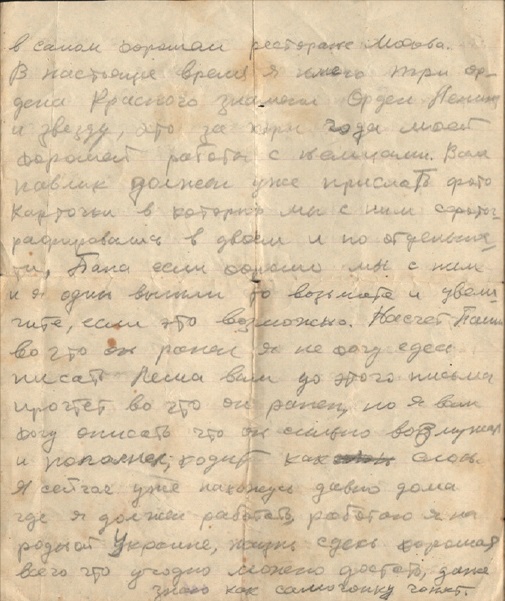 в самом хорошом ресторане Москва.
В настоящре время я имею три ор-
дена Красного знамени Орден Ленина
и звезду, это за три года моей
хорошей работы с немцами. Вам
павлик должен уже прислать фото
карточки в которых мы с ним сфотог-
рафировались в двоем и по отдельнос-
ти, Папа если хорошо мы с ним
и я один вышли то возьмите и увели-
чите, если это возможно. Насчет
во что он ранен я не хочу сдесь
писать Леша вам до этого письма
прочтет во что он ранен, но я вам
хочу описать что он сильно возмужал
и ходит как слон.
Я сейчас уже нахожусь давно дома
где я должен работать, работаю я на
родной Украине, жизнь сдесь хорошая
всего что угодно можно достать, даже
знаю как самогонку гонят.